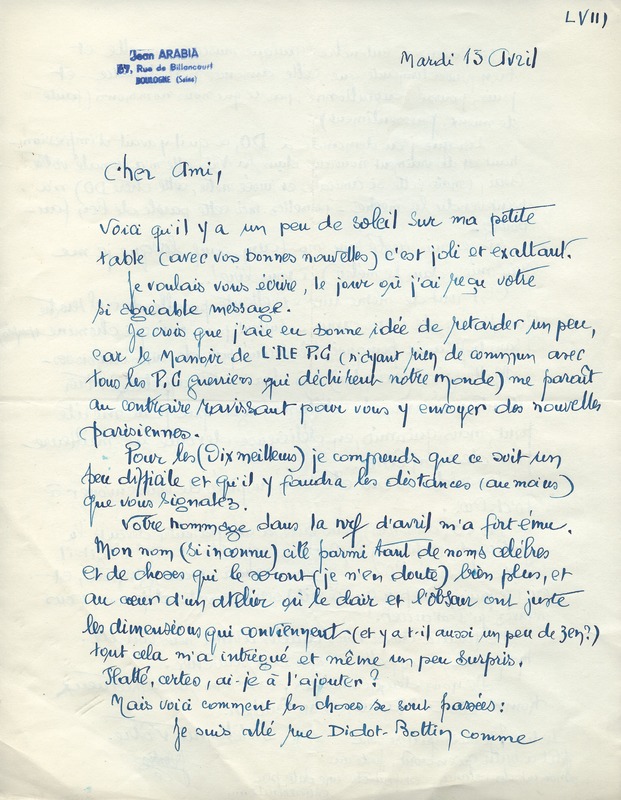 LVIII
Jean ARABIA
87, Rue de Billancourt
BOULOGNE (Seine)
Mardi 13 Avril
Cher Ami,
Voici qu'il y a un peu de soleil sur ma petite
table (avec vos bonnes nouvelles) c'est joli et exaltant.
Je voulais vous écrire, le jour où j'ai reçu votre
si agréable message.
Je crois que j'aie eu bonne idée de retarder un peu,
car le Manoir de L'ILE P.G (n'ayant rien de commun avec
tous les P.G guerriers qui déchirent notre monde) me paraît
au contraire ravissant pour vous y envoyer des nouvelles
parisiennes.
Pour les (Dix meilleurs) je comprends que ce soit un
peu difficile et qu'il y faudra les distances (au moins)
que vous signalez.
Votre hommage dans la nrf d'avril m'a fort ému.
Mon nom (si inconnu) cité parmi tant de noms célèbres
et de choses qui le seront (je n'en doute) bien plus, et
au cœur d'un atelier où le clair et l'obscur ont juste
les dimensions qui conviennent (et y a t-il aussi un peu de zen?)
tout cela m'a intrigué et même un peu surpris.
Flatté, certes, ai-je à l'ajouter?
Mais voici comment les choses se sont passées:
Je suis allé rue Didot-Bottin comme